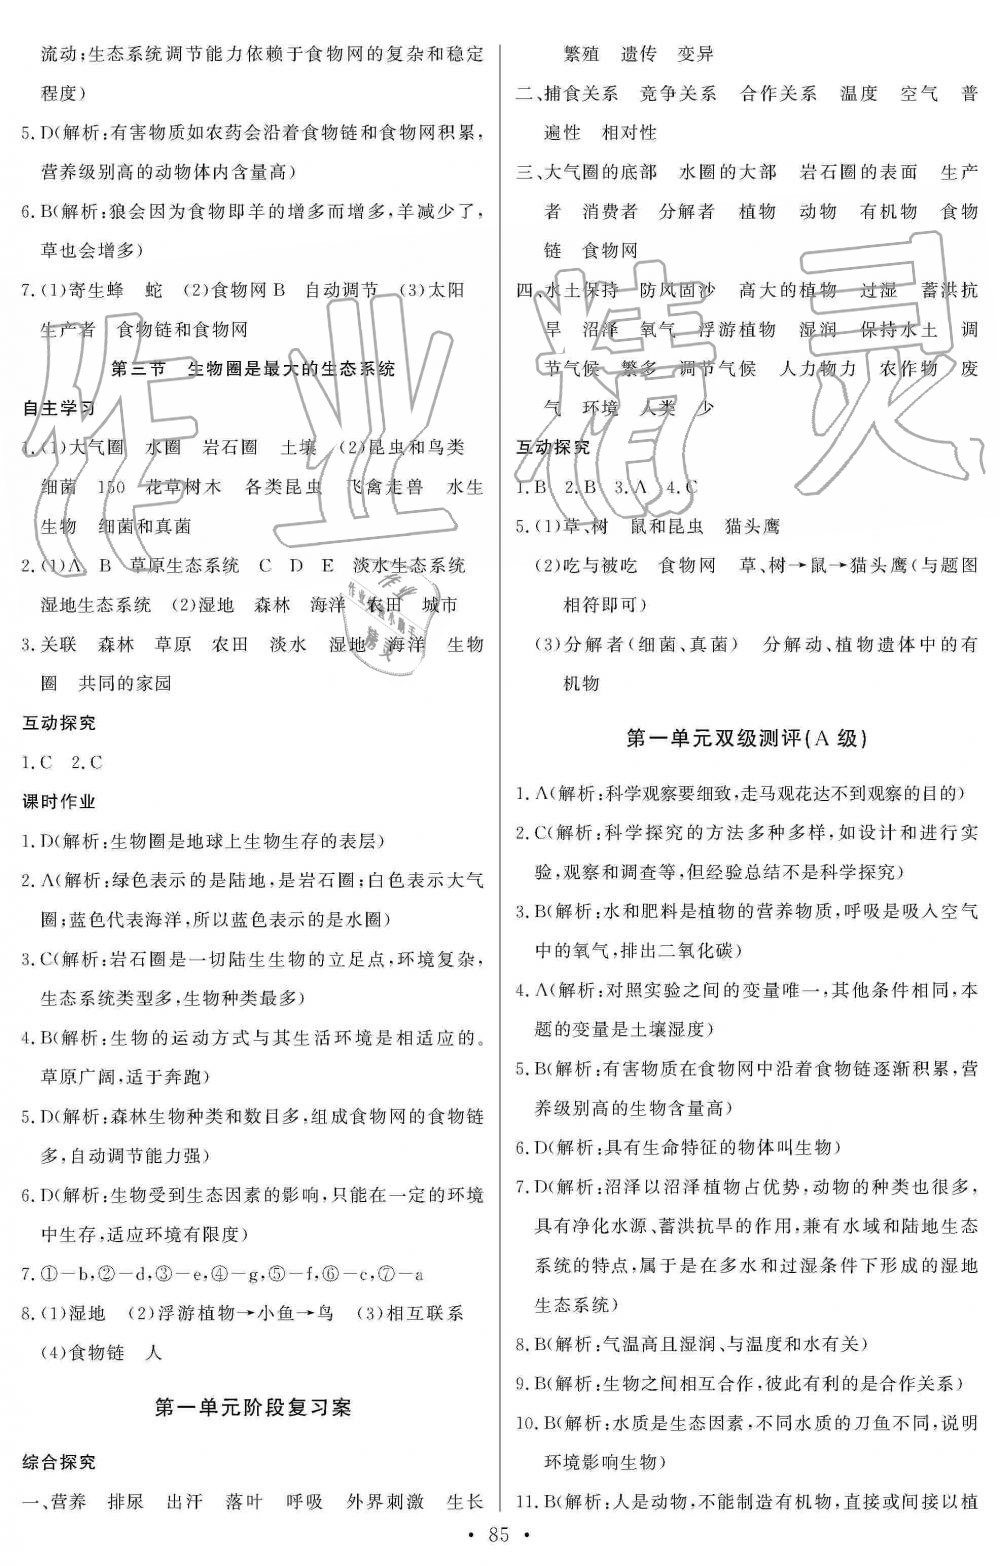 流动;生态系统调节能力依赖于食物网的复杂和稳定
程度)
5. D(解析:有害物质如农药会沿着食物链和食物网积累,
营养级别高的动物体内含量高)
6. B(解析:狼会因为食物即羊的增多而增多,羊减少了,
草也会增多)
7. (1)寄生蜂 蛇 (2)食物网 B 自动调节 (3)太阳
生产者 食物链和食物网
第三节 生物圈是最大的生态系统
自主学习
1. (1)大气圈 水圈 岩石圈 土壤 (2)昆虫和鸟类
细菌 150 花草树木 各类昆虫 飞禽走兽 水生
生物 细菌和真菌
2. (1)A B 草原生态系统 C D E 淡水生态系统
湿地生态系统 (2)湿地 森林 海洋 农田 城市
3. 关联 森林 草原 农田 淡水 湿地 海洋 生物
圈 共同的家园
互动探究
1. C 2. C
课时作业
1. D(解析:生物圈是地球上生物生存的表层)
2. A(解析:绿色表示的是陆地,是岩石圈;白色表示大气
圈;蓝色代表海洋,所以蓝色表示的是水圈)
3. C(解析:岩石圈是一切陆生生物的立足点,环境复杂,
生态系统类型多,生物种类最多)
4. B(解析:生物的运动方式与其生活环境是相适应的。
草原广阔,适于奔跑)
5. D(解析:森林生物种类和数目多,组成食物网的食物链
多,自动调节能力强)
6. D(解析:生物受到生态因素的影响,只能在一定的环境
中生存,适应环境有限度)
7. ①—b,②—d,③—e,④—g,⑤—f,⑥—c,⑦—a
8. (1)湿地 (2)浮游植物→小鱼→鸟 (3)相互联系
(4)食物链 人
第一单元阶段复习案
综合探究
一、营养 排尿 出汗 落叶 呼吸 外界刺激 生长
繁殖 遗传 变异
二、捕食关系 竞争关系 合作关系 温度 空气 普
遍性 相对性
三、大气圈的底部 水圈的大部 岩石圈的表面 生产
者 消费者 分解者 植物 动物 有机物 食物
链 食物网
四、水土保持 防风固沙 高大的植物 过湿 蓄洪抗
旱 沼泽 氧气 浮游植物 湿润 保持水土 调
节气候 繁多 调节气候 人力物力 农作物 废
气 环境 人类 少
互动探究
1. B 2. B 3. A 4. C
5. (1)草、树 鼠和昆虫 猫头鹰
(2)吃与被吃 食物网 草、树→鼠→猫头鹰(与题图
相符即可)
(3)分解者(细菌、真菌) 分解动、植物遗体中的有
机物
第一单元双级测评(A 级)
1. A(解析:科学观察要细致,走马观花达不到观察的目的)
2. C(解析:科学探究的方法多种多样,如设计和进行实
验,观察和调查等,但经验总结不是科学探究)
3. B(解析:水和肥料是植物的营养物质,呼吸是吸入空气
中的氧气,排出二氧化碳)
4. A(解析:对照实验之间的变量唯一,其他条件相同,本
题的变量是土壤湿度)
5. B(解析:有害物质在食物网中沿着食物链逐渐积累,营
养级别高的生物含量高)
6. D(解析:具有生命特征的物体叫生物)
7. D(解析:沼泽以沼泽植物占优势,动物的种类也很多,
具有净化水源、蓄洪抗旱的作用,兼有水域和陆地生态
系统的特点,属于是在多水和过湿条件下形成的湿地
生态系统)
8. B(解析:气温高且湿润、与温度和水有关)
9. B(解析:生物之间相互合作,彼此有利的是合作关系)
10. B(解析:水质是生态因素,不同水质的刀鱼不同,说明
环境影响生物)
11. B(解析:人是动物,不能制造有机物,直接或间接以植
• 85 •
作业精灵